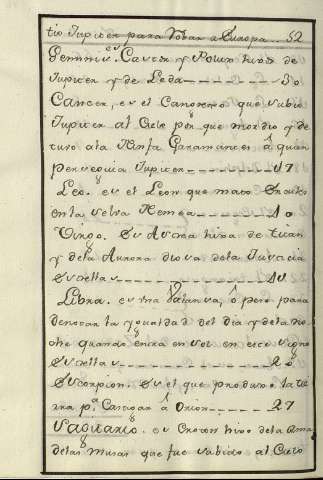 tio Jupiter para Robar a Europa .. 52
Geminis es Castor y Polux hixos de
Jupiter y de Leda ------ 30
Cancer, es el Cangrexo que subio
Jupiter al Cielo por que mordio y de
tuvo ala Ninfa Garamances â quien
perseguia Jupiter ------ 17
Leo. es el Leon que mato Ercules
en la selva Nemea ------ 40
Virgo. Es Astrea hixa de titan
y dela Aurora diosa dela Justicia
Estrellas ------
Libra. es una balanza, ô peso para
denotar la ygualdad del dia y dela no
che quando entra en sol en este signo
Estrellas ------ 20
Escorpion. Es el que produxo la tie
rra pa. Castigar â Orion ---- 27
Sagitario. es Croton hixo dela Ama
delas musas que fue subido al Cielo